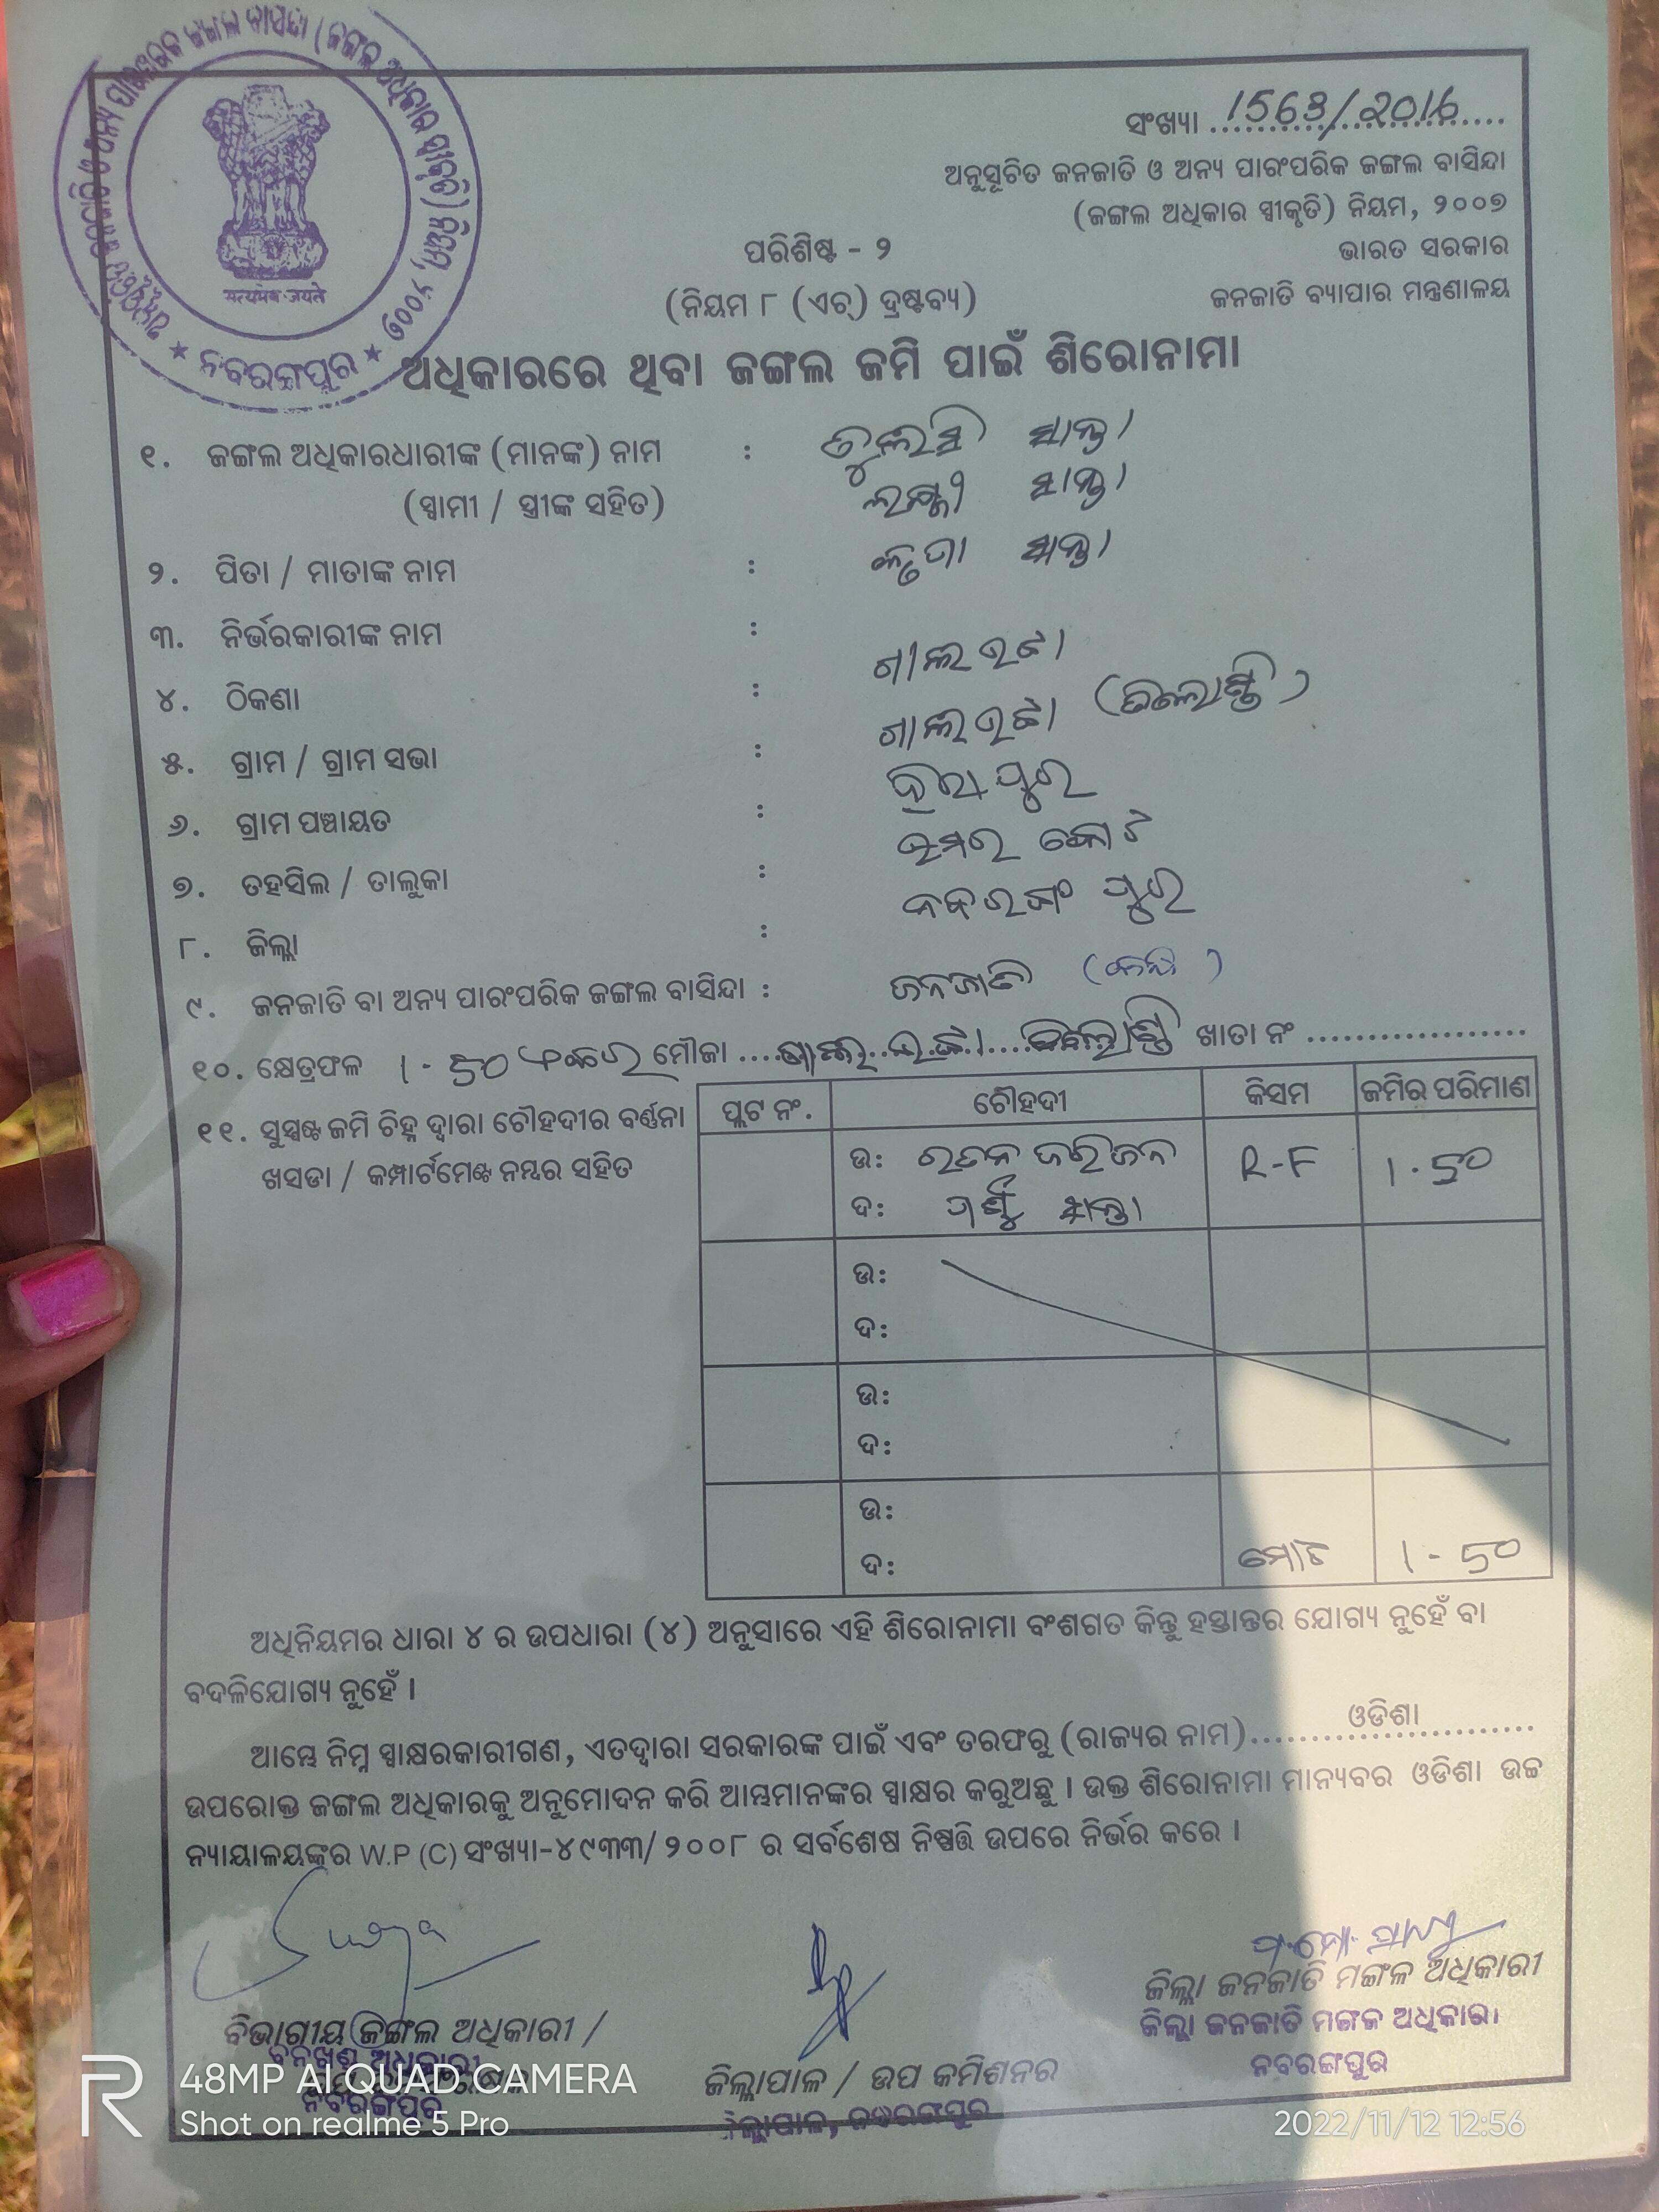 ସଂଖ୍ୟା 1563/2016
ଅନୁସୂଚିତ ଜନଜାତି ଓ ଅନ୍ୟ ପାରଂପରିକ ଜଙ୍ଗଲ ବାସିନ୍ଦା
(ଜଙ୍ଗଲ ଅଧିକାର ସ୍ୱୀକୃତି) ନିୟମ, ୨୦୦୭
ଭାରତ ସରକାର
ଜନଜାତି ବ୍ୟାପାର ମନ୍ତ୍ରଣାଳୟ
ପରିଶିଷ୍ଟ - ୨
(ନିୟମ ୮ (ଏଚ୍) ଦ୍ରଷ୍ଟବ୍ୟ)
सत्यमेव जयते
★ ନବରଙ୍ଗପୁର ★
ଅଧିକାରରେ ଥିବା ଜଙ୍ଗଲ ଜମି ପାଇଁ ଶିରୋନାମା
୧. ଜଙ୍ଗଲ ଅଧିକାରଧାରୀଙ୍କ (ମାନଙ୍କ) ନାମ : ତୁଳସି ସାନ୍ତା
(ସ୍ୱାମୀ / ସ୍ତ୍ରୀଙ୍କ ସହିତ) ଲକ୍ଷ୍ମୀ ସାନ୍ତା
୨. ପିତା / ମାତାଙ୍କ ନାମ : ସାନ୍ତା
୩. ନିର୍ଭରକାରୀଙ୍କ ନାମ :
୪. ଠିକଣା : ଶାଲଭଟା
୫. ଗ୍ରାମ / ଗ୍ରାମ ସଭା : ଶାଲଭଟା
୬. ଗ୍ରାମ ପଞ୍ଚାୟତ :
୭. ତହସିଲ / ତାଲୁକା : ଉମରକୋଟ
୮. ଜିଲ୍ଲା : ନବରଙ୍ଗପୁର
୯. ଜନଜାତି ବା ଅନ୍ୟ ପାରଂପରିକ ଜଙ୍ଗଲ ବାସିନ୍ଦା : ଜନଜାତି
୧୦. କ୍ଷେତ୍ରଫଳ 1-50 ଏକର ମୌଜା ଶାଲଭଟା ଖାତା ନଂ
୧୧. ସୁସ୍ପଷ୍ଟ ଜମି ଚିହ୍ନ ଦ୍ୱାରା ଚୌହଦୀର ବର୍ଣ୍ଣନା
ଖସଡା / କମ୍ପାର୍ଟମେଣ୍ଟ ନମ୍ବର ସହିତ
ପ୍ଲଟ ନଂ. ଚୌହଦୀ କିସମ ଜମିର ପରିମାଣ
ଉ: ରତନ ହରିଜନ R-F 1.50
ଦ: ସାନ୍ତା
ଉ:
ଦ:
ଉ:
ଦ:
ଉ:
ଦ: ମୋଟ 1-50
ଅଧିନିୟମର ଧାରା ୪ ର ଉପଧାରା (୪) ଅନୁସାରେ ଏହି ଶିରୋନାମା ବଂଶଗତ କିନ୍ତୁ ହସ୍ତାନ୍ତର ଯୋଗ୍ୟ ନୁହେଁ ବା
ବଦଳିଯୋଗ୍ୟ ନୁହେଁ ।
ଆମ୍ଭେ ନିମ୍ନ ସ୍ୱାକ୍ଷରକାରୀଗଣ, ଏତଦ୍ୱାରା ସରକାରଙ୍କ ପାଇଁ ଏବଂ ତରଫରୁ (ରାଜ୍ୟର ନାମ) ଓଡିଶା
ଉପରୋକ୍ତ ଜଙ୍ଗଲ ଅଧିକାରକୁ ଅନୁମୋଦନ କରି ଆମ୍ଭମାନଙ୍କର ସ୍ୱାକ୍ଷର କରୁଅଛୁ । ଉକ୍ତ ଶିରୋନାମା ମାନ୍ୟବର ଓଡିଶା ଉଚ୍ଚ
ନ୍ୟାୟାଳୟଙ୍କର W.P (C) ସଂଖ୍ୟା-୪୯୩୩/୨୦୦୮ ର ସର୍ବଶେଷ ନିଷ୍ପତ୍ତି ଉପରେ ନିର୍ଭର କରେ ।
ବିଭାଗୀୟ ଜଙ୍ଗଲ ଅଧିକାରୀ /
ବନଖଣ୍ଡ ଅଧିକାରୀ
ନବରଙ୍ଗପୁର
ଜିଲ୍ଲାପାଳ / ଉପ କମିଶନର
ଜିଲ୍ଲାପାଳ, ନବରଙ୍ଗପୁର
ଜିଲ୍ଲା ଜନଜାତି ମଙ୍ଗଳ ଅଧିକାରୀ
ଜିଲ୍ଲା ଜନଜାତି ମଙ୍ଗଳ ଅଧିକାରୀ
ନବରଙ୍ଗପୁର
48MP AI QUAD CAMERA
Shot on realme 5 Pro
2022/11/12 12:56